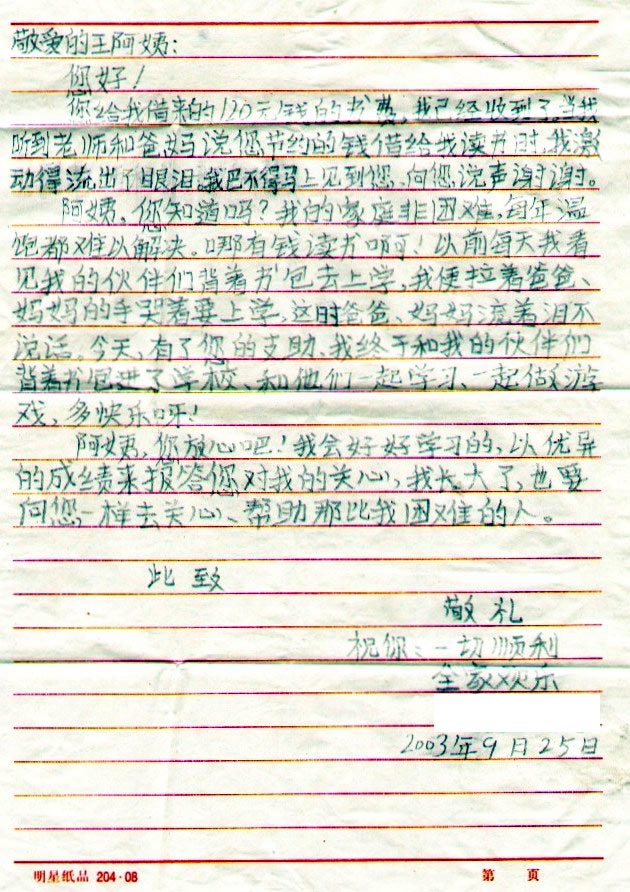 敬爱的王阿姨：
您好！
您给我借来的120元钱的书费，我已经收到了，当我
听到老师和爸妈说您节约的钱借给我读书时，我激
动得流出了眼泪，我巴不得马上见到您、向您说声谢谢。
阿姨，您知道吗？我的家庭非困难，每年温
饱都难以解决。哪有钱读书啊！以前每天我看
见我的伙伴们背着书包去上学，我便拉着爸爸、
妈妈的手哭着要上学，这时爸爸、妈妈流着泪不
说话。今天，有了您的支助、我终于和我的伙伴们
背着书包进了学校、和他们一起学习、一起做游
戏，多快乐呀！
阿姨，您放心吧！我会好好学习的，以优异
的成绩来报答您对我的关心，我长大了，也要
向您一样去关心、帮助那比我困难的人。
此致
敬礼
祝你：一切顺利
全家欢乐
2003年9月25日
明星纸品 204·08 第 页